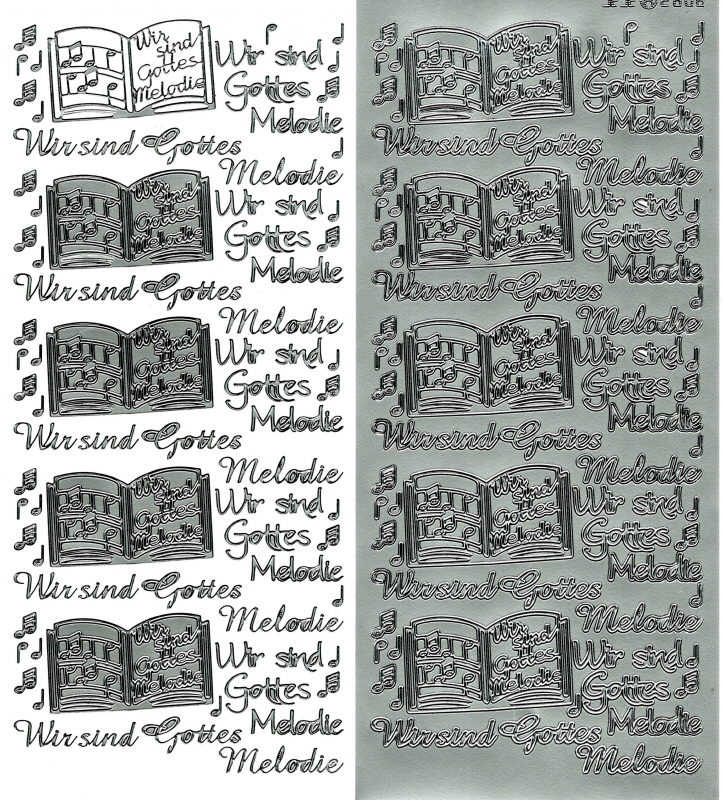 Wir
sind
Gottes
Melodie
Wir sind
Gottes
Melodie
Wir sind Gottes
Melodie
Wir
sind
Gottes
Melodie
Wir sind
Gottes
Melodie
Wir sind Gottes
Melodie
Wir
sind
Gottes
Melodie
Wir sind
Gottes
Melodie
Wir sind Gottes
Melodie
Wir
sind
Gottes
Melodie
Wir sind
Gottes
Melodie
Wir sind Gottes
Melodie
Wir
sind
Gottes
Melodie
Wir sind
Gottes
Melodie
Wir sind Gottes
Melodie
Wir
sind
Gottes
Melodie
Wir sind
Gottes
Melodie
Wir sind Gottes
Melodie
Wir
sind
Gottes
Melodie
Wir sind
Gottes
Melodie
Wir sind Gottes
Melodie
Wir
sind
Gottes
Melodie
Wir sind
Gottes
Melodie
Wir sind Gottes
Melodie
Wir
sind
Gottes
Melodie
Wir sind
Gottes
Melodie
Wir sind Gottes
Melodie
Wir
sind
Gottes
Melodie
Wir sind
Gottes
Melodie
Wir sind Gottes
Melodie